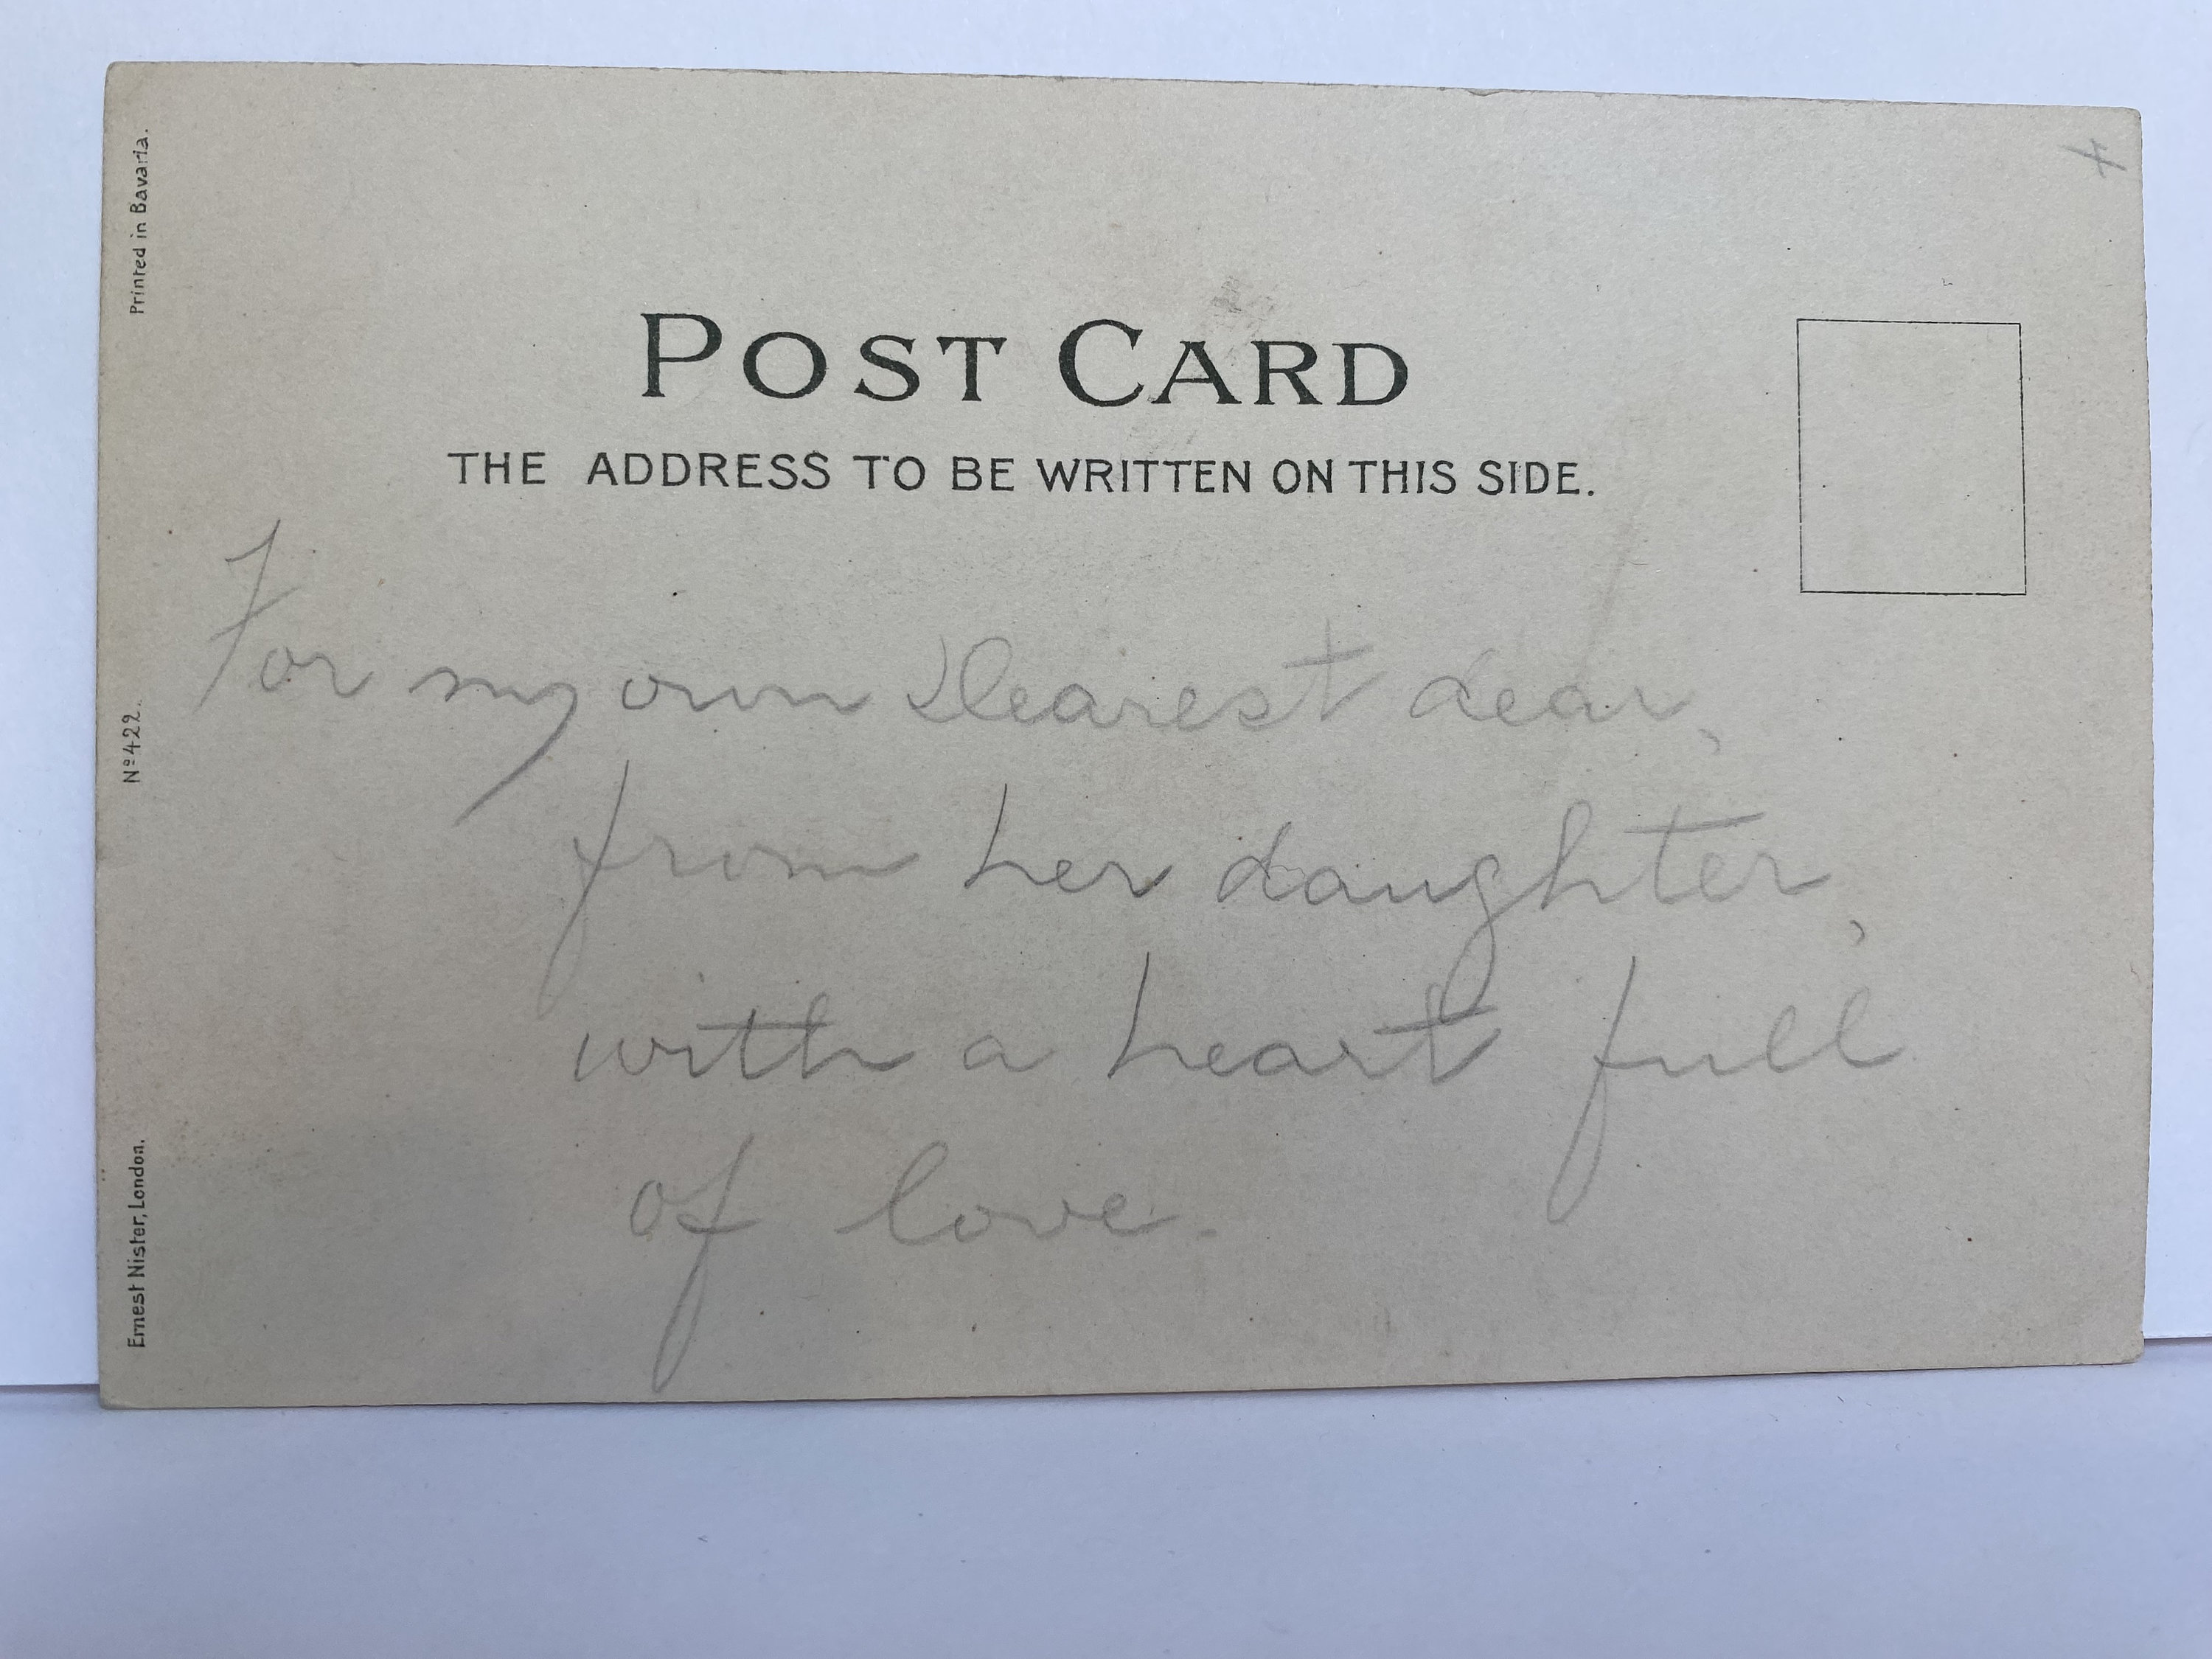 Printed in Bavaria.
POST CARD
THE ADDRESS TO BE WRITTEN ON THIS SIDE.
For my own Dearest dear,
Nº 422.
from her daughter,
with a heart full
of love.
Ernest Nister, London.